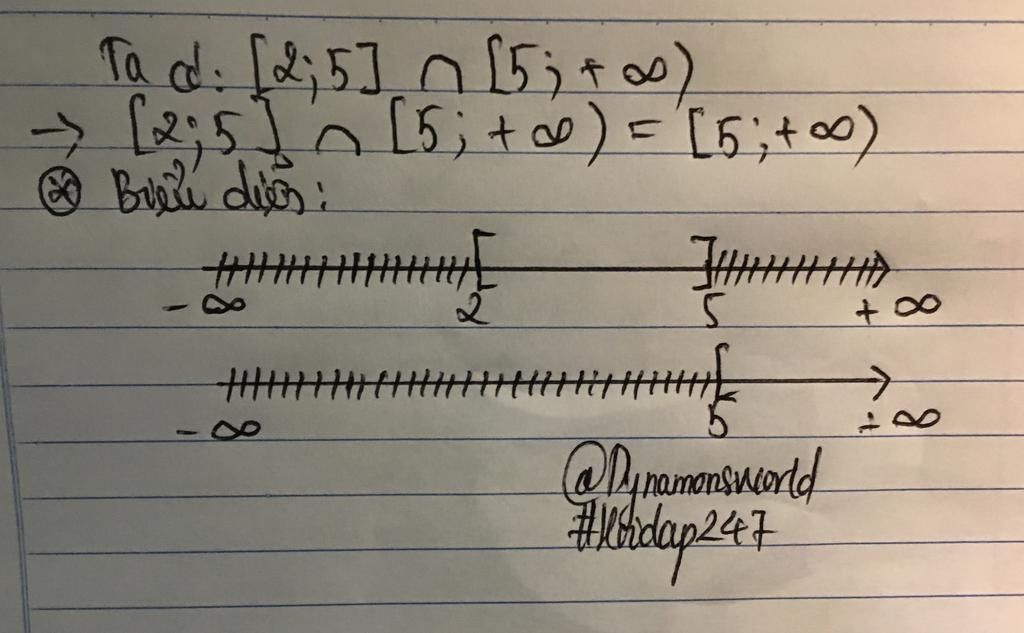 Ta có: [2;5] ∩ [5;+∞)
→ [2;5] ∩ [5;+∞) = [5;+∞)
⊛ Biểu diễn:
-∞ 2 5 +∞
-∞ 5 +∞
@Dynamonsworld
#Hoidap247